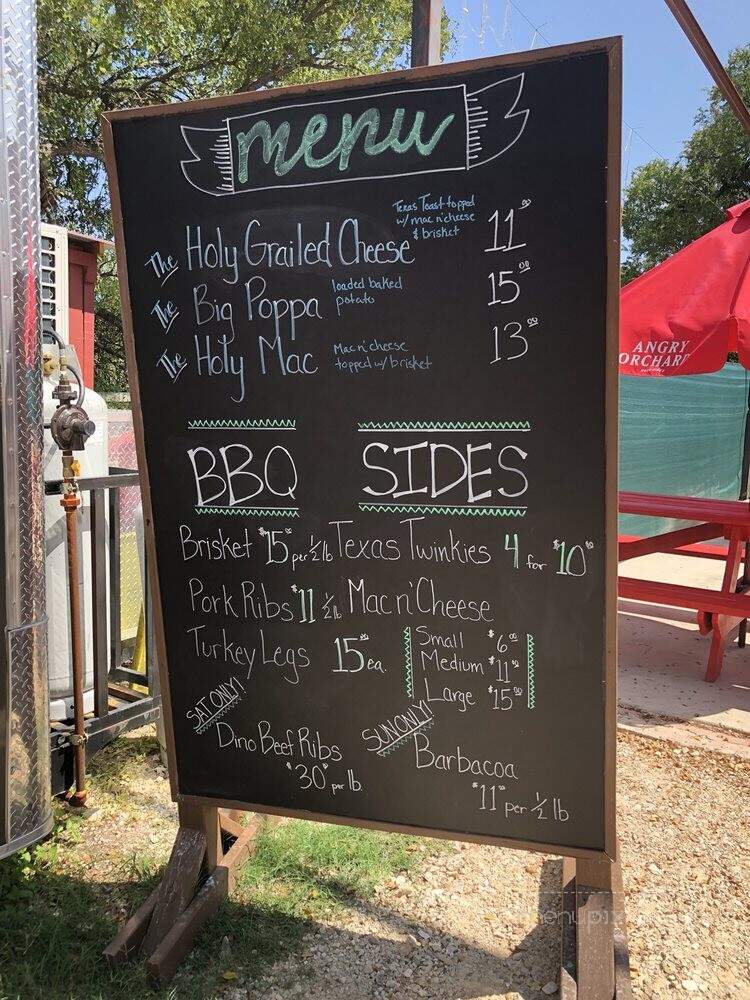 menu
The Holy Grailed Cheese Texas Toast topped w/ mac n' cheese & brisket 11°°
The Big Poppa loaded baked potato 15°°
The Holy Mac Mac n' cheese topped w/ brisket 13°°
BBQ
Brisket $15°° per ½ lb
Pork Ribs $11 ½ lb
Turkey Legs 15°° ea.
SAT ONLY!
Dino Beef Ribs
$30°° per lb
SIDES
Texas Twinkies 4 for $10°°
Mac n' Cheese
Small $6°°
Medium $11°°
Large $15°°
SUN ONLY!
Barbacoa
$11 per ½ lb
ANGRY
ORCHARD
menupix